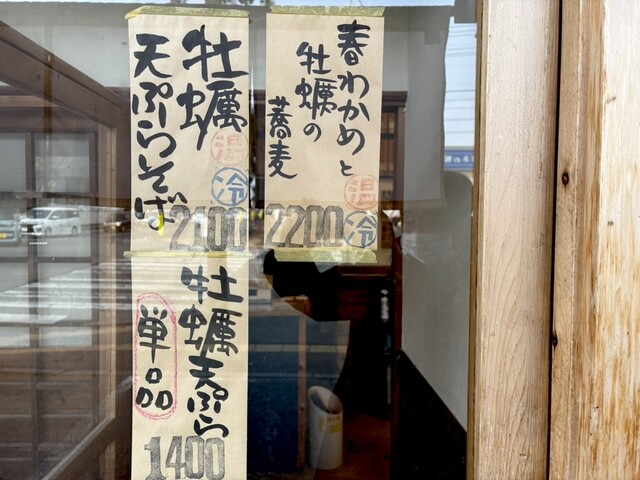 春わかめと
牡蠣の
蕎麦
温
冷
2200
牡蠣
天ぷらそば
温
冷
2100
牡蠣天ぷら
単品
1400